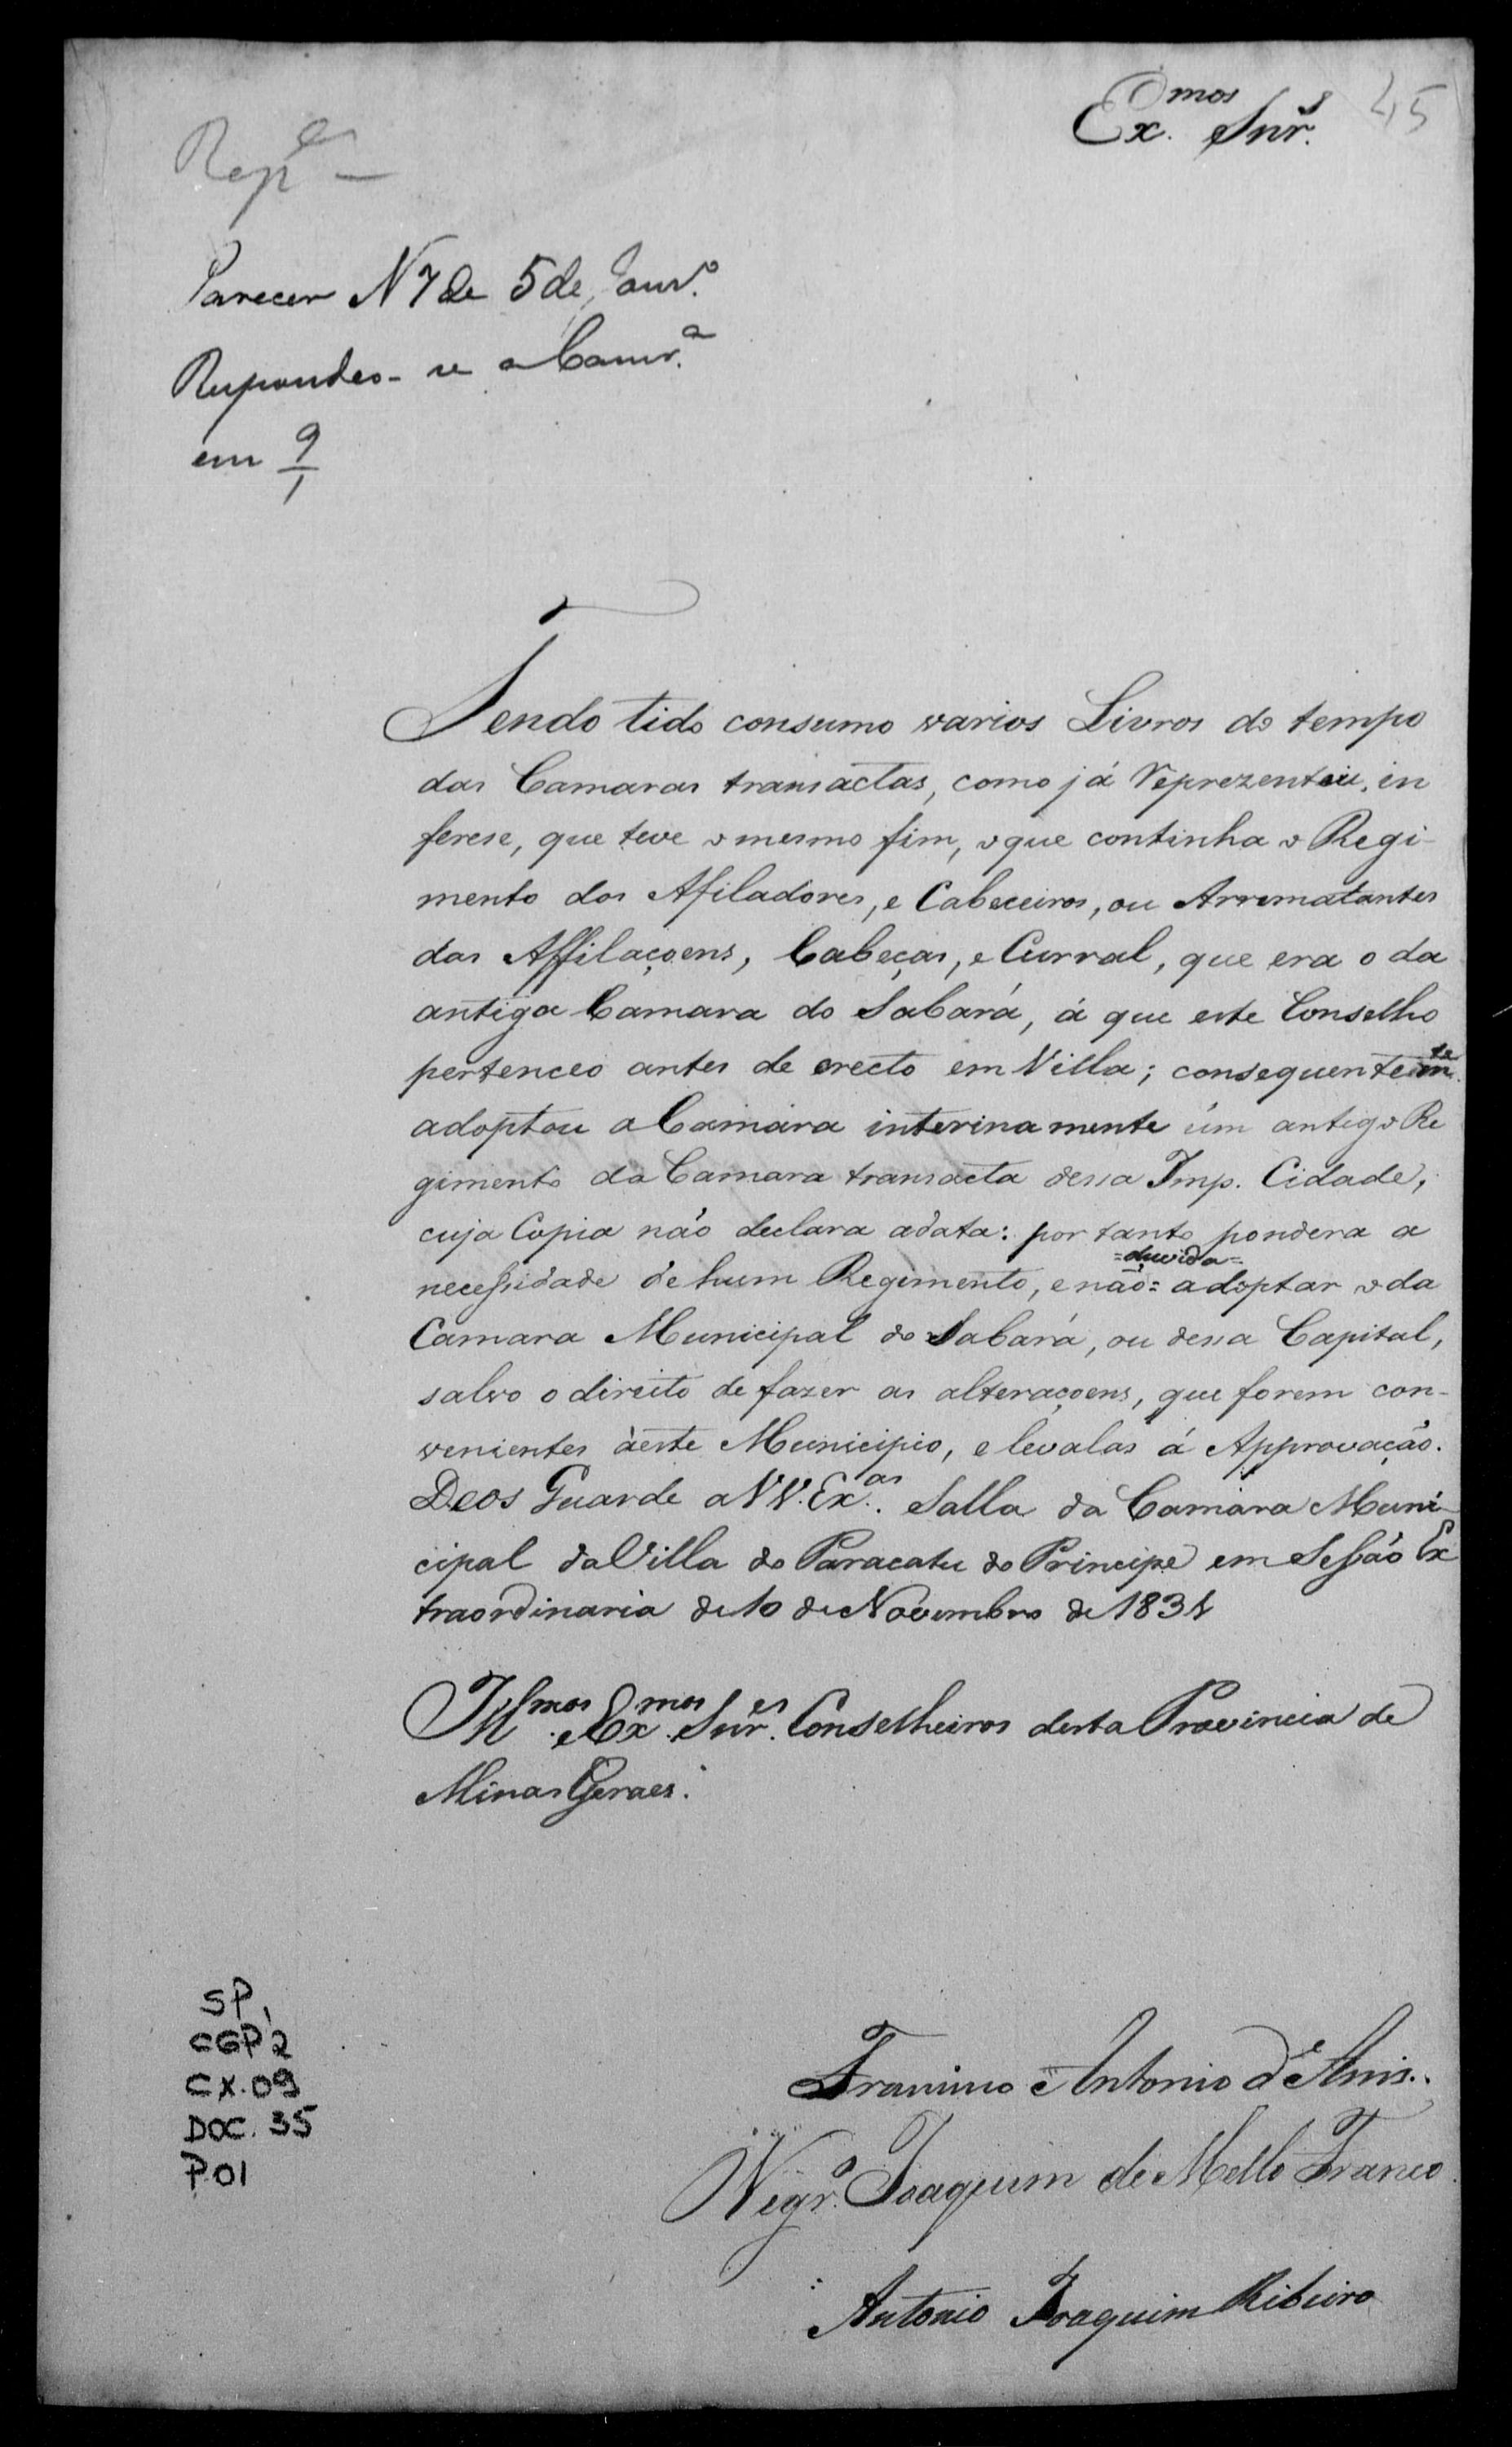 Ex.mos Snr.s 45
Rep.es
Parecer N 7 de 5 de Janr.o
Respondeo-se a Camr.a
em 9/1
Tendo tido consumo varios Livros do tempo
das Camaras transactas, como já reprezentou, in
ferese, que teve o mesmo fim, o que continha o Regi-
mento dos Afiladores, e Cabeceiros, ou Arrematantes
das Affilaçoens, Cabeças, e Curral, que era o da
antiga Camara do Sabará, á que este Conselho
pertenceo antes de erecto em Villa; consequentem.te
adoptou a Camara interinamente úm antigo Re
gimento da Camara transacta dessa Imp. Cidade,
cuja Copia não declara adata: por tanto pondera a
necessidade de hum Regimento, e não= =duvida= adoptar o da
Camara Municipal do Sabará, ou dessa Capital,
salvo o direito de fazer as alteraçoens, que forem con-
venientes àeste Municipio, e levalas á Approvação.
Deos Guarde a VV. Ex.as. Salla da Camara Muni-
cipal da Villa do Paracatu do Principe em Sessão Ex
traordinaria de 10 de Novembro de 1831
Ill.mos e Ex.mos Snr.es Conselheiros desta Provincia de
Minas Geraes.
SP,
CGP2
CX.09
DOC. 35
P.01
Antonio d'
Joaquim de Mello Franco
Antonio Joaquim Ribeiro